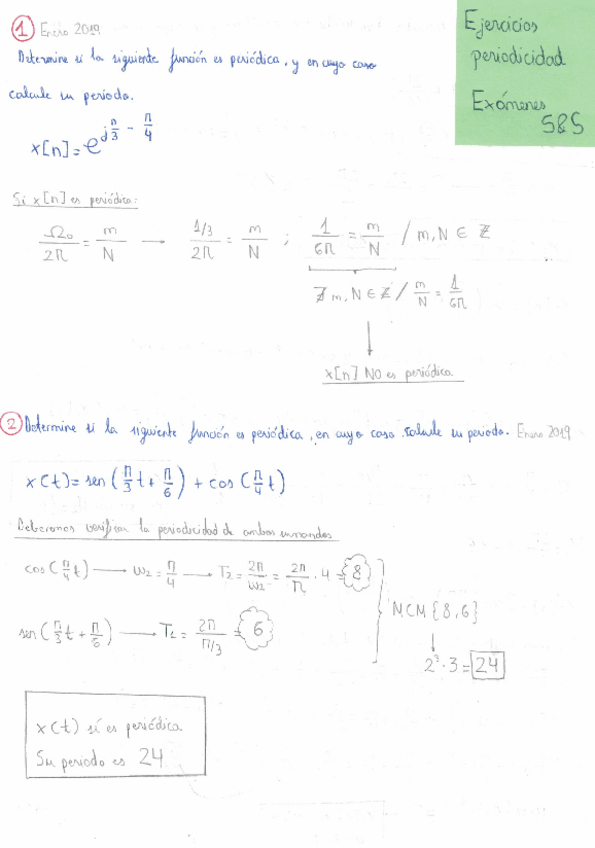 Ejercicios
periodicidad
Exámenes
S&S
① Enero 2019
Determine si la siguiente función es periódica, y en cuyo caso
calcule su periodo.
x[n] = e^{j n/3 - π/4}
Si x[n] es periódica:
Ω₀/2π = m/N → 1/3/2π = m/N ; 1/6π = m/N / m, N ∈ ℤ
∄ m, N ∈ ℤ / m/N = 1/6π
x[n] NO es periódica.
② Determine si la siguiente función es periódica, en cuyo caso calcule su periodo. Enero 2019
x(t) = sen(π/3 t + π/6) + cos(π/4 t)
Deberemos verificar la periodicidad de ambos sumandos
cos(π/4 t) → ω₂ = π/4 → T₂ = 2π/ω₂ = 2π/π · 4 = 8
MCM {8,6}
sen(π/3 t + π/6) → T₁ = 2π/π/3 = 6
2³ · 3 = 24
x(t) sí es periódica.
Su periodo es 24